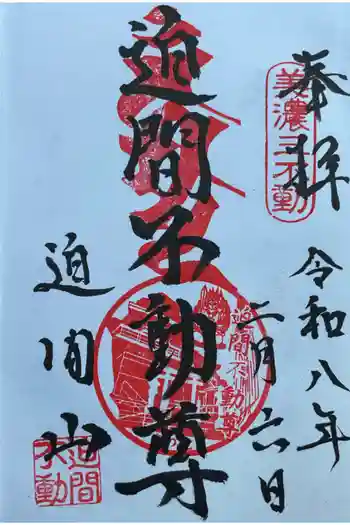 奉拝
美濃三不動
令和八年
二月六日
迫間不動尊
迫間不動尊
迫间山
迫間不動